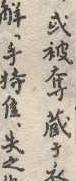 或被奪藏于
解手持隹失之